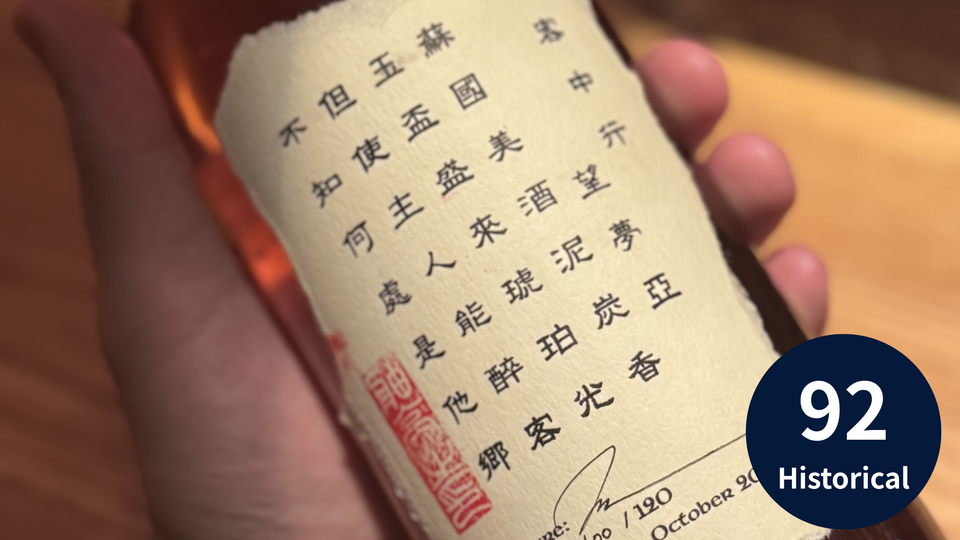 客中行
望夢亞
蘇國美酒泥炭香
玉盃盛來琥珀光
但使主人能醉客
不知何處是他鄉
/120
October 20
92
Historical